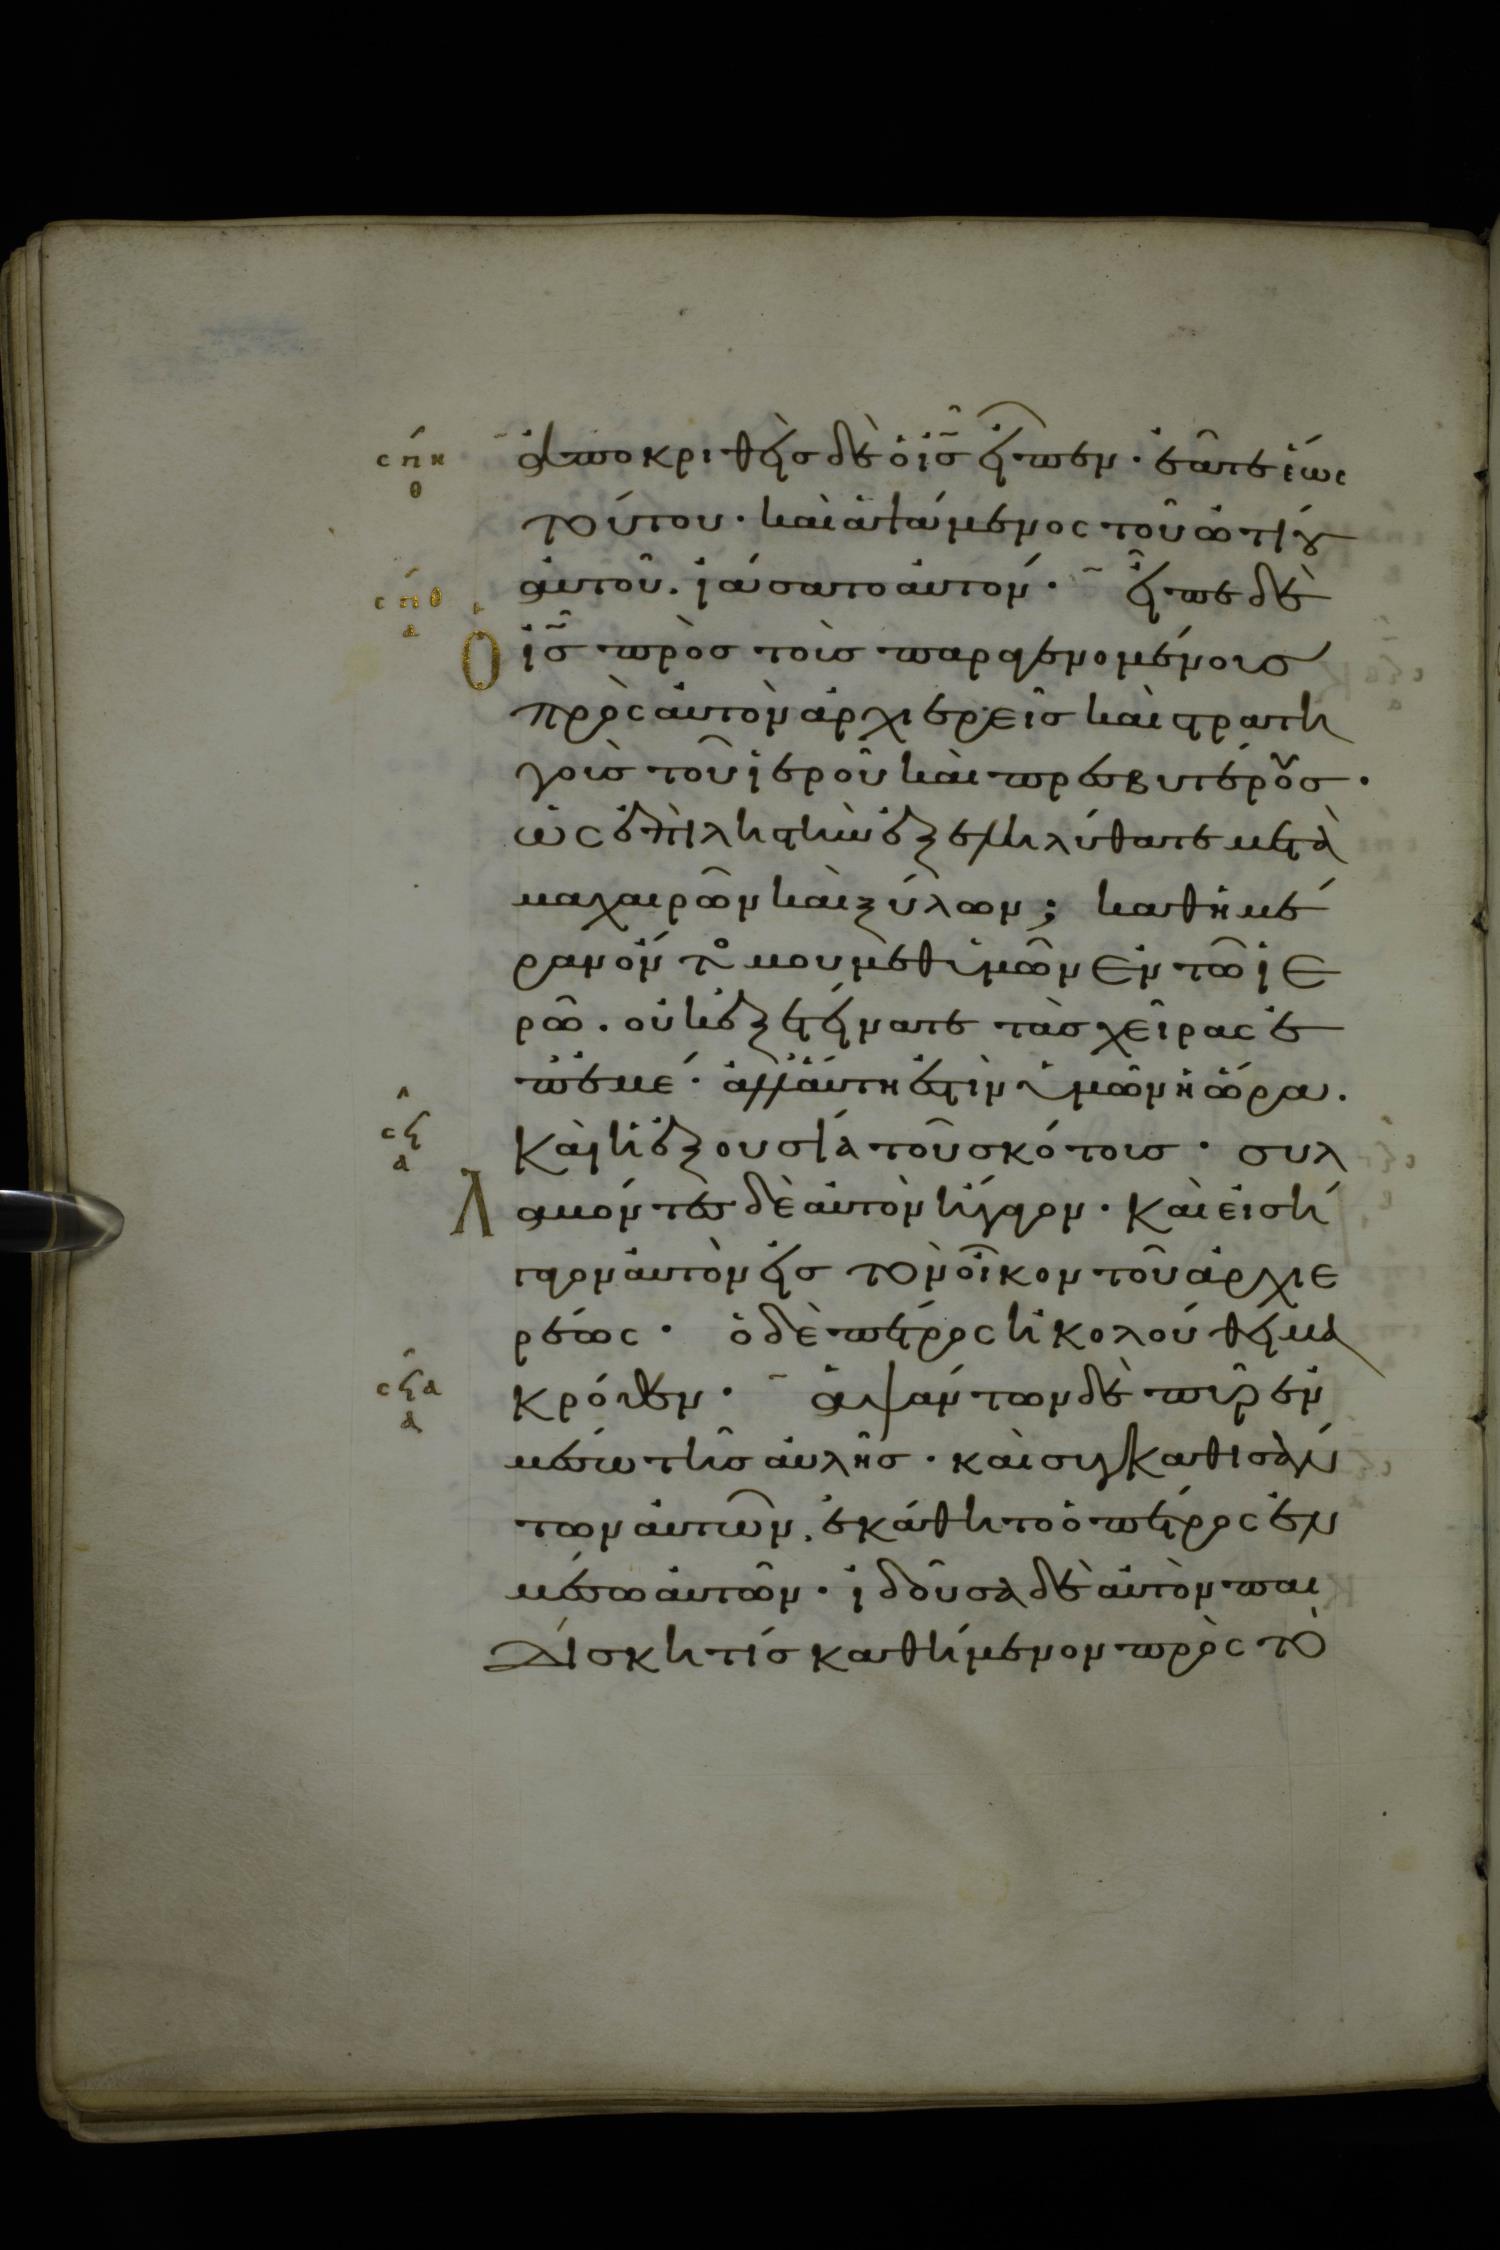 σπη ἀποκριθεὶς δὲ ὁ ις̅ εἶπεν · ἐᾶτε ἕως
θ τούτου · καὶ ἁψάμενος τοῦ ὠτίου
αὐτοῦ . ἰάσατο αὐτόν · εἶπε δὲ
σπθ α Ὁ ις̅ πρὸς τοὺς παραγενομένους
πρὸς αὐτὸν ἀρχιερεῖς καὶ στρατη
γοὺς τοῦ ἱεροῦ καὶ πρεσβυτέρους ·
ὡς ἐπὶ ληστὴν ἐξεληλύθατε μετὰ
μαχαιρῶν καὶ ξύλων ; καθημέ
ραν ὄντος μου μεθ ὑμῶν ἐν τῶ ἱε
ρῶ . οὐκ ἐξετείνατε τὰς χεῖρας ἐ
π ἐμέ · ἀλλ αὕτη ἐστὶν ὑμῶν ἡ ὥρα .
σϟ α Καὶ ἡ ἐξουσία τοῦ σκότους · συλ
λαβόντες δὲ αὐτὸν ἤγαγον · Καὶ εἰσή
γαγον αὐτὸν εἰς τὸν οἶκον τοῦ ἀρχιε
ρέως · ὁ δὲ πέτρος ἠκολούθει μα
σϟα α κρόθεν · ἁψάντων δὲ πῦρ ἐν
μέσω τῆς αὐλῆς · καὶ συγκαθισάν
των αὐτῶν . ἐκάθητο ὁ πέτρος ἐν
μέσω αὐτῶν · ἰδοῦσα δὲ αὐτὸν παι
δίσκη τίς καθήμενον πρὸς τὸ